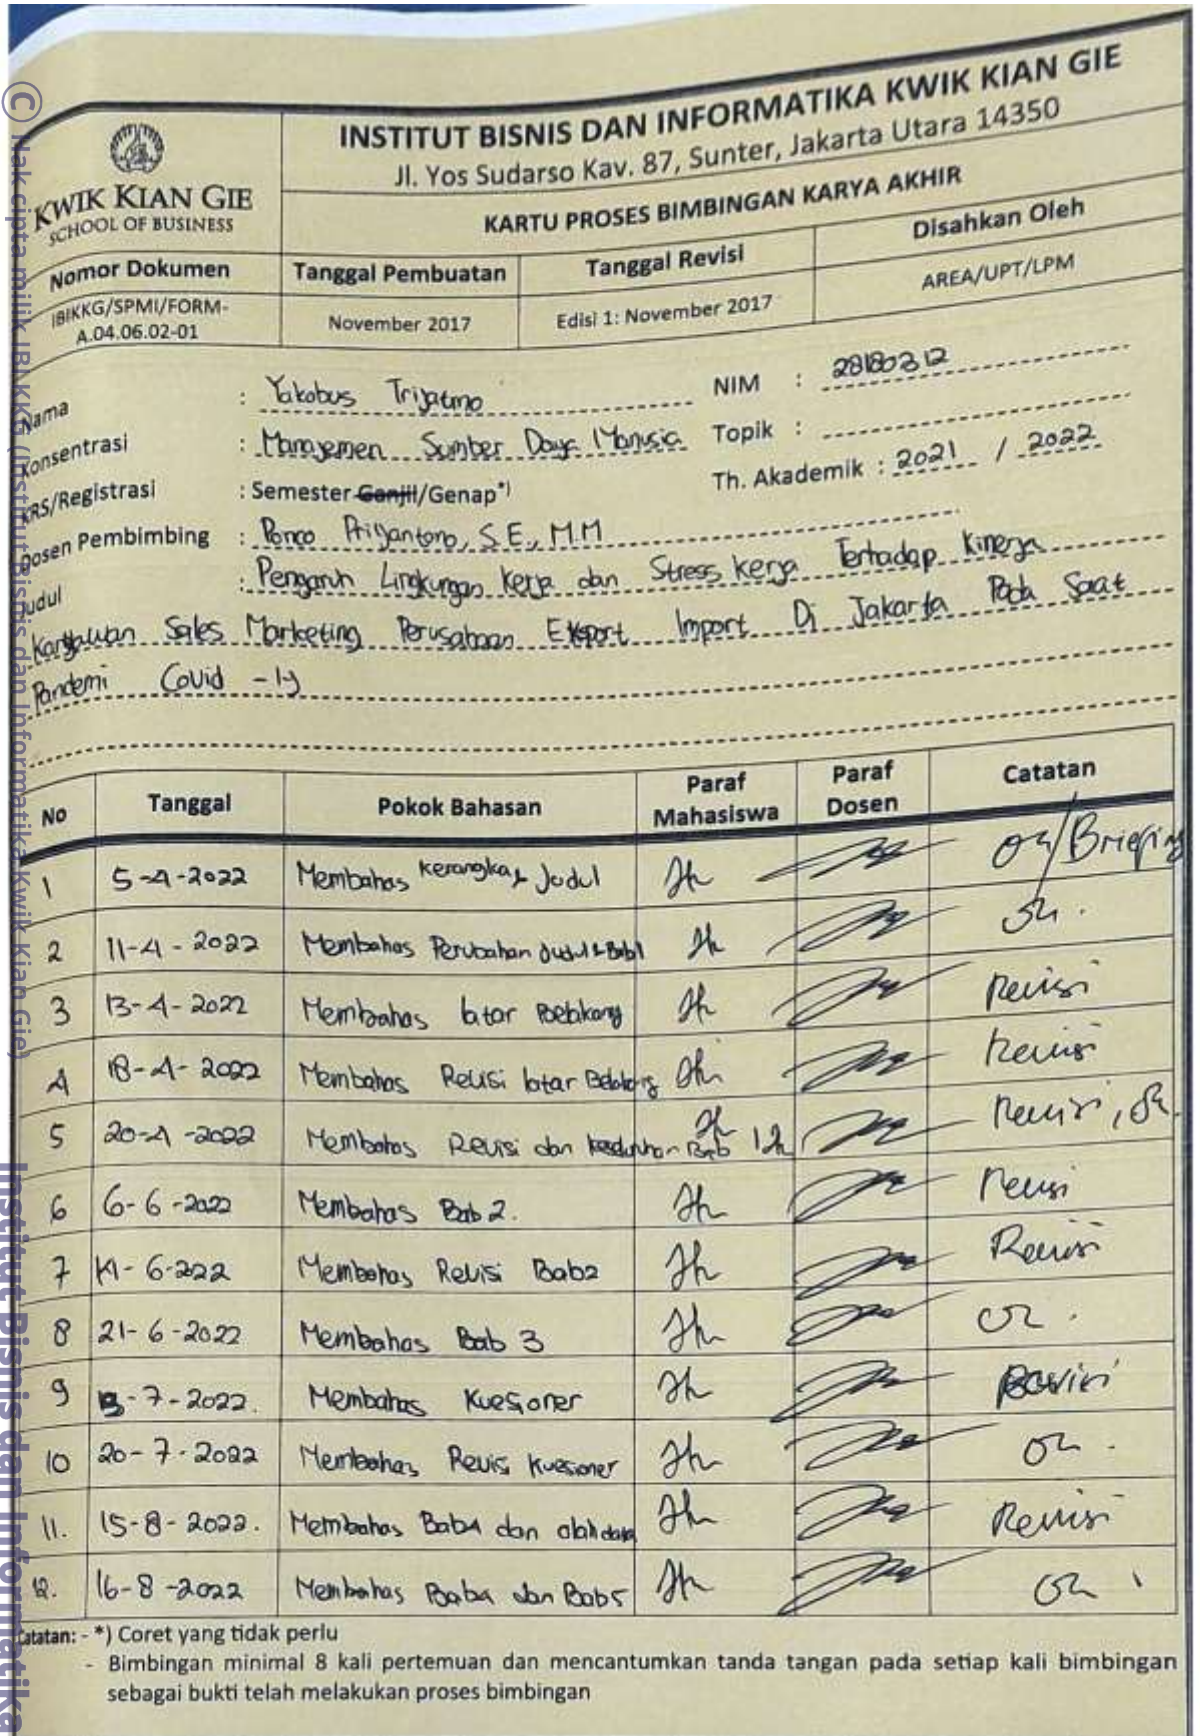 INSTITUT BISNIS DAN INFORMATIKA KWIK KIAN GIE
Jl. Yos Sudarso Kav. 87, Sunter, Jakarta Utara 14350
KWIK KIAN GIE
SCHOOL OF BUSINESS
KARTU PROSES BIMBINGAN KARYA AKHIR
Nomor Dokumen Tanggal Pembuatan Tanggal Revisi Disahkan Oleh
IBIKKG/SPMI/FORM-
A.04.06.02-01 November 2017 Edisi 1: November 2017 AREA/UPT/LPM
Nama : Yakobus Trijatmo NIM : 28180312
Konsentrasi : Manajemen Sumber Daya Manusia Topik :
KRS/Registrasi : Semester Ganjil/Genap*) Th. Akademik : 2021 / 2022
Dosen Pembimbing : Ponco Priyantono, S.E., M.M
Judul : Pengaruh Lingkungan Kerja dan Stress Kerja Terhadap Kinerja
Karyawan Sales Marketing Perusahaan Eksport Import Di Jakarta Pada Saat
Pandemi Covid -19
No Tanggal Pokok Bahasan Paraf Mahasiswa Paraf Dosen Catatan
1 5-4-2022 Membahas kerangka & Judul ok/Briefing
2 11-4-2022 Membahas Perubahan Judul & Bab1 ok.
3 13-4-2022 Membahas latar Belakang Revisi
4 18-4-2022 Membahas Revisi latar Belakang Revisi
5 20-4-2022 Membahas Revisi dan keseluruhan Bab 1 Revisi, ok
6 6-6-2022 Membahas Bab 2. Revisi
7 14-6-2022 Membahas Revisi Bab2 Revisi
8 21-6-2022 Membahas Bab 3 ok.
9 13-7-2022. Membahas Kuesioner Revisi
10 20-7-2022 Membahas Revisi Kuesioner ok.
11. 15-8-2022. Membahas Bab4 dan olah data Revisi
12. 16-8-2022 Membahas Bab4 dan Bab5 ok
Catatan: - *) Coret yang tidak perlu
- Bimbingan minimal 8 kali pertemuan dan mencantumkan tanda tangan pada setiap kali bimbingan
sebagai bukti telah melakukan proses bimbingan
© Hak cipta milik IBI KKG (Institut Bisnis dan Informatika Kwik Kian Gie)
Institut Bisnis dan Informatika